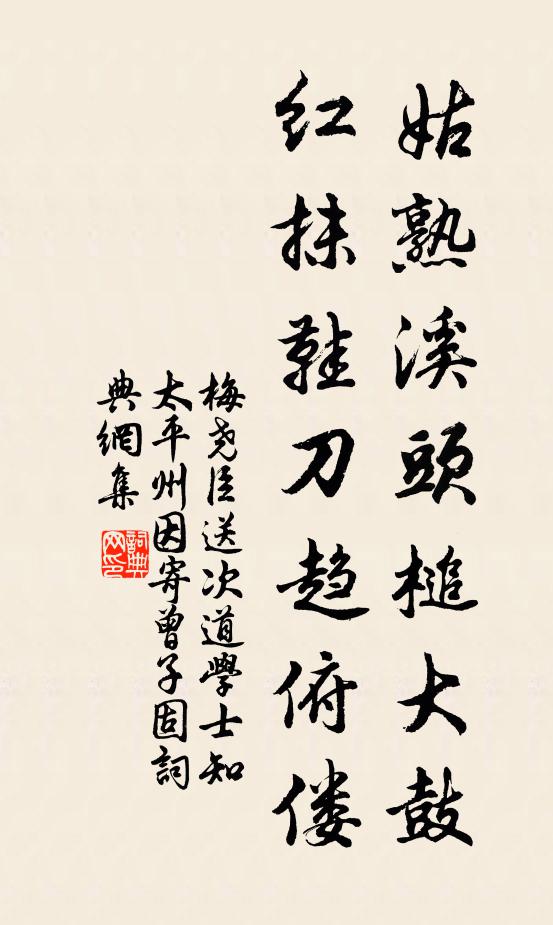 姑熟溪頭槌大鼓
紅抹鞋刀趋俯偻
梅堯臣送次道學士知
太平州因寄曾子固詞
典網集
詞典网印